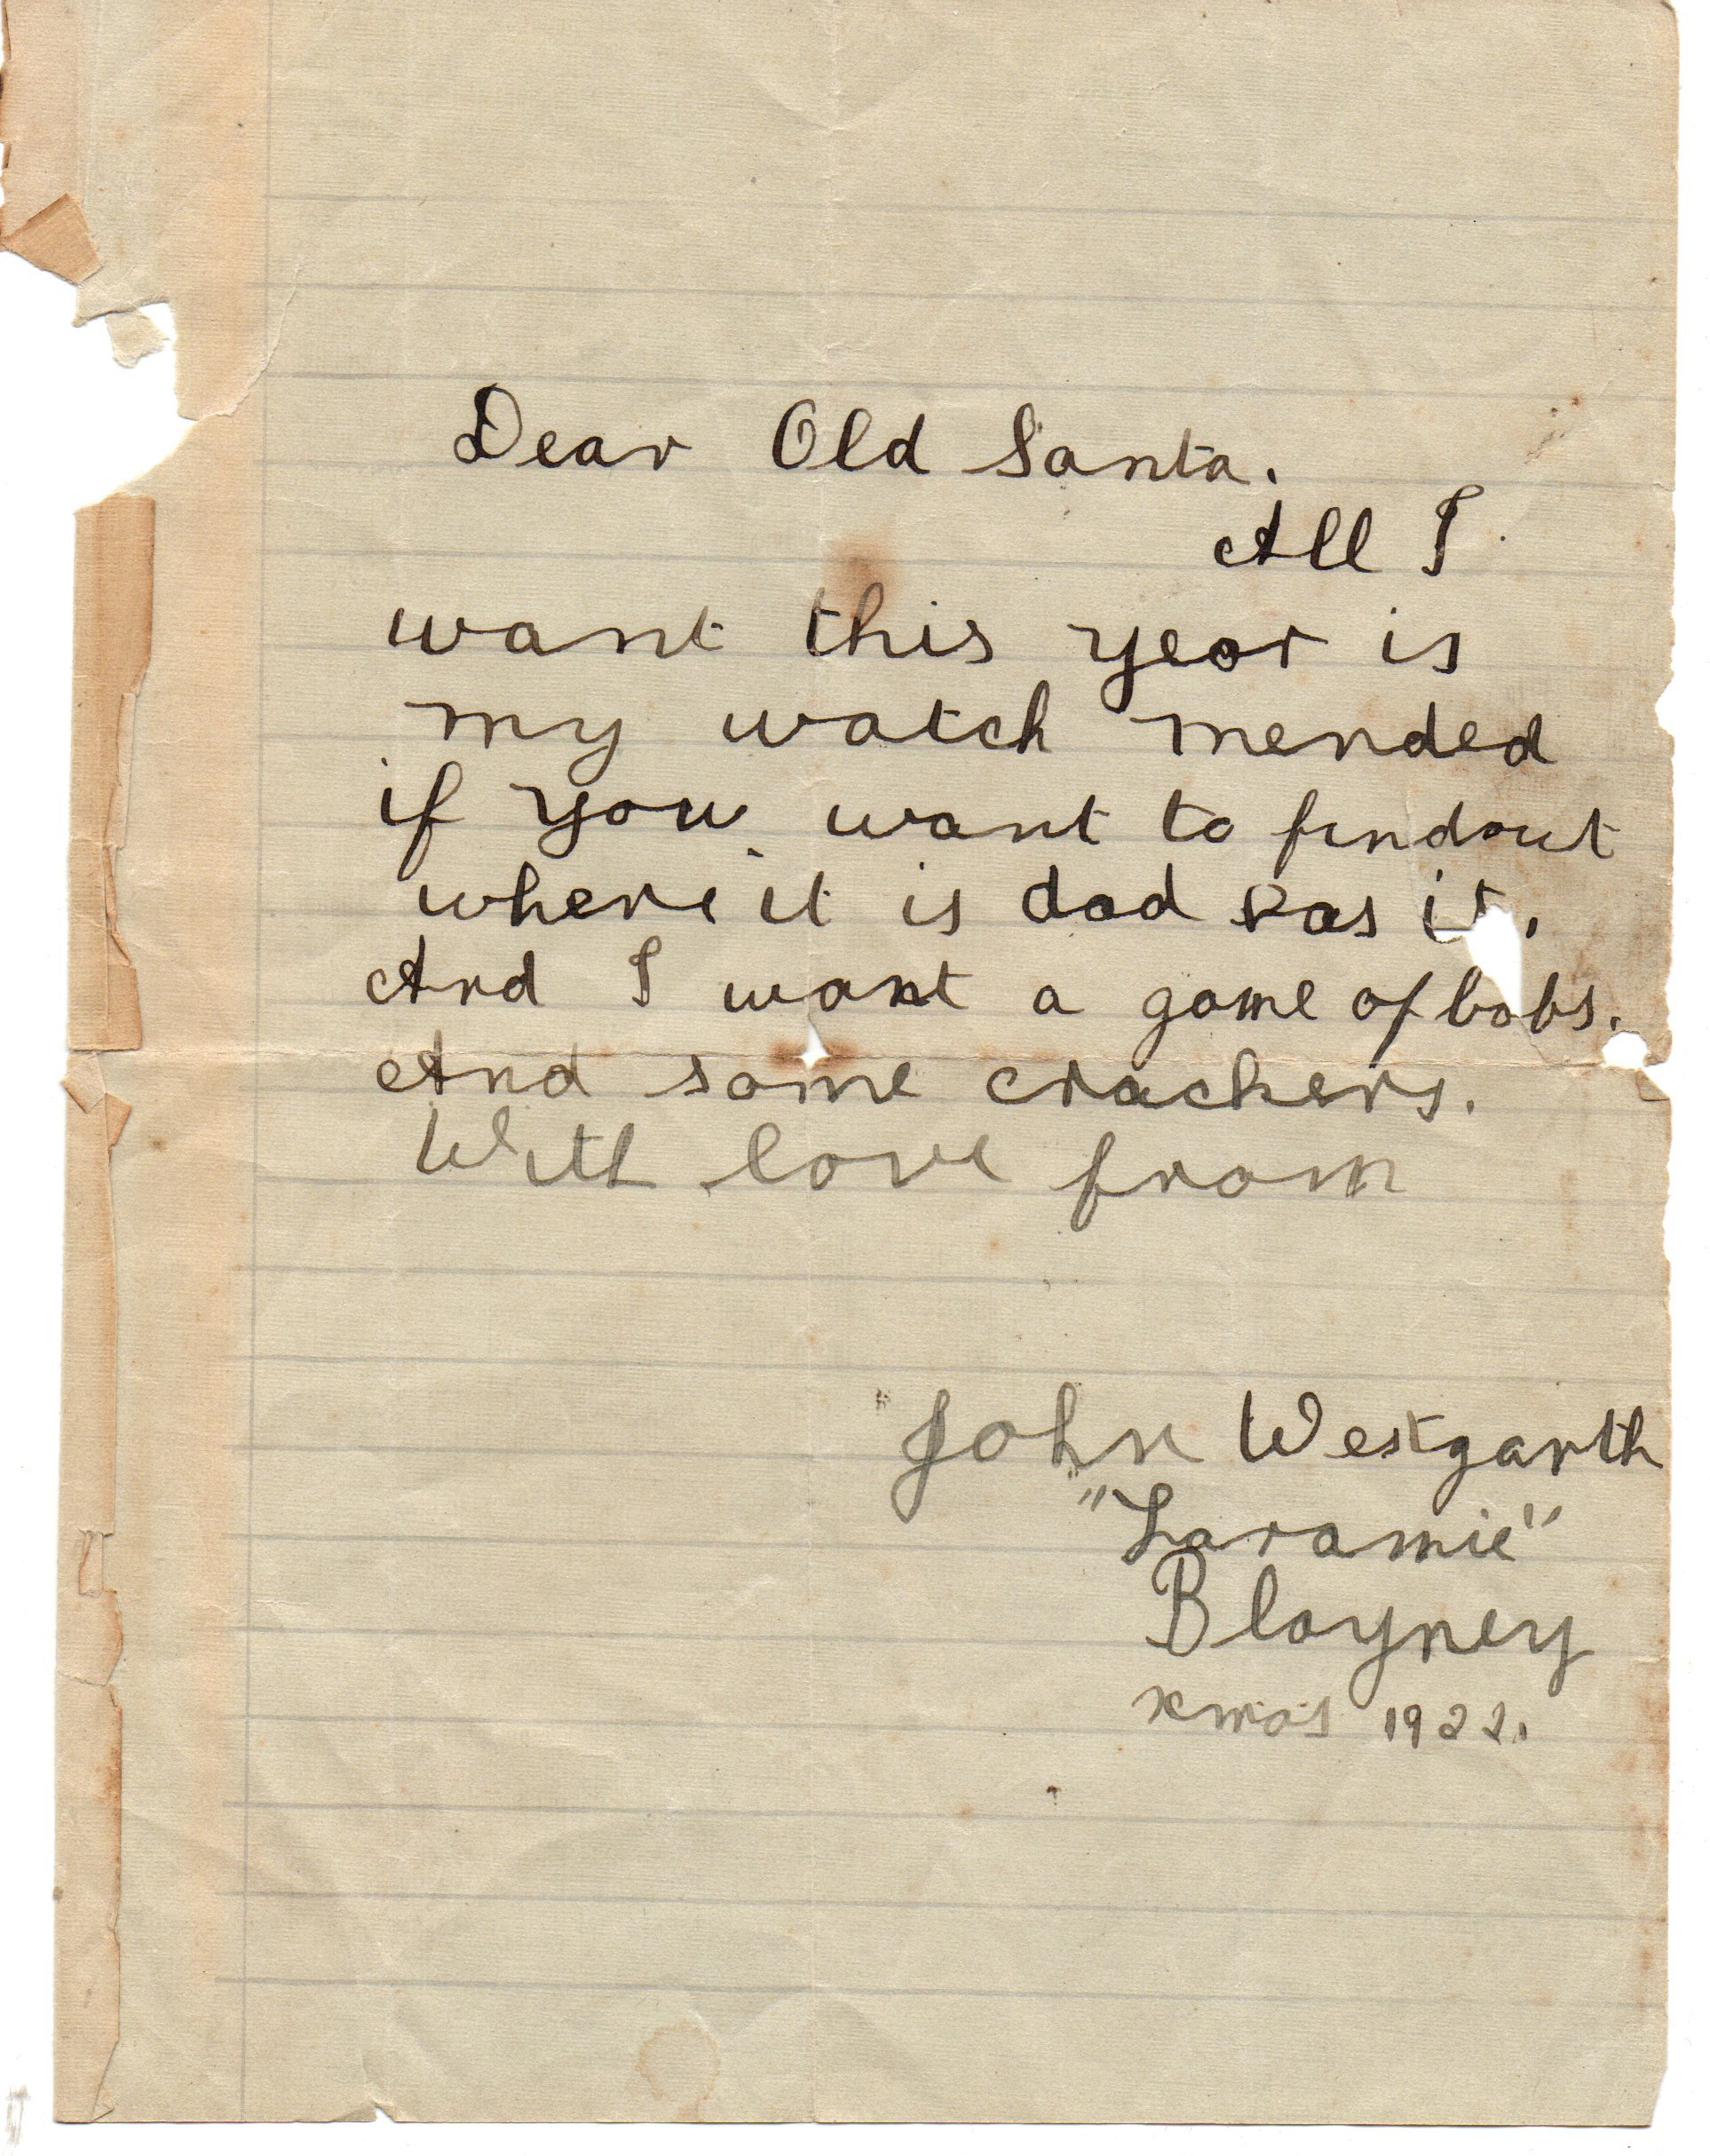 Dear Old Santa.
All I
want this year is
my watch mended
if you want to findout
where it is dad has it.
And I want a game of bobs.
And some crackers.
With love from
John Westgarth
"Laramie"
Blayney
xmas 1922.